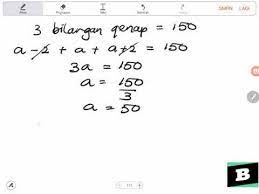 SIMPAN LAGI
3 bilangan genap = 150
a - 2 + a + a + 2 = 150
3a = 150
a = 150
3
a = 50
B